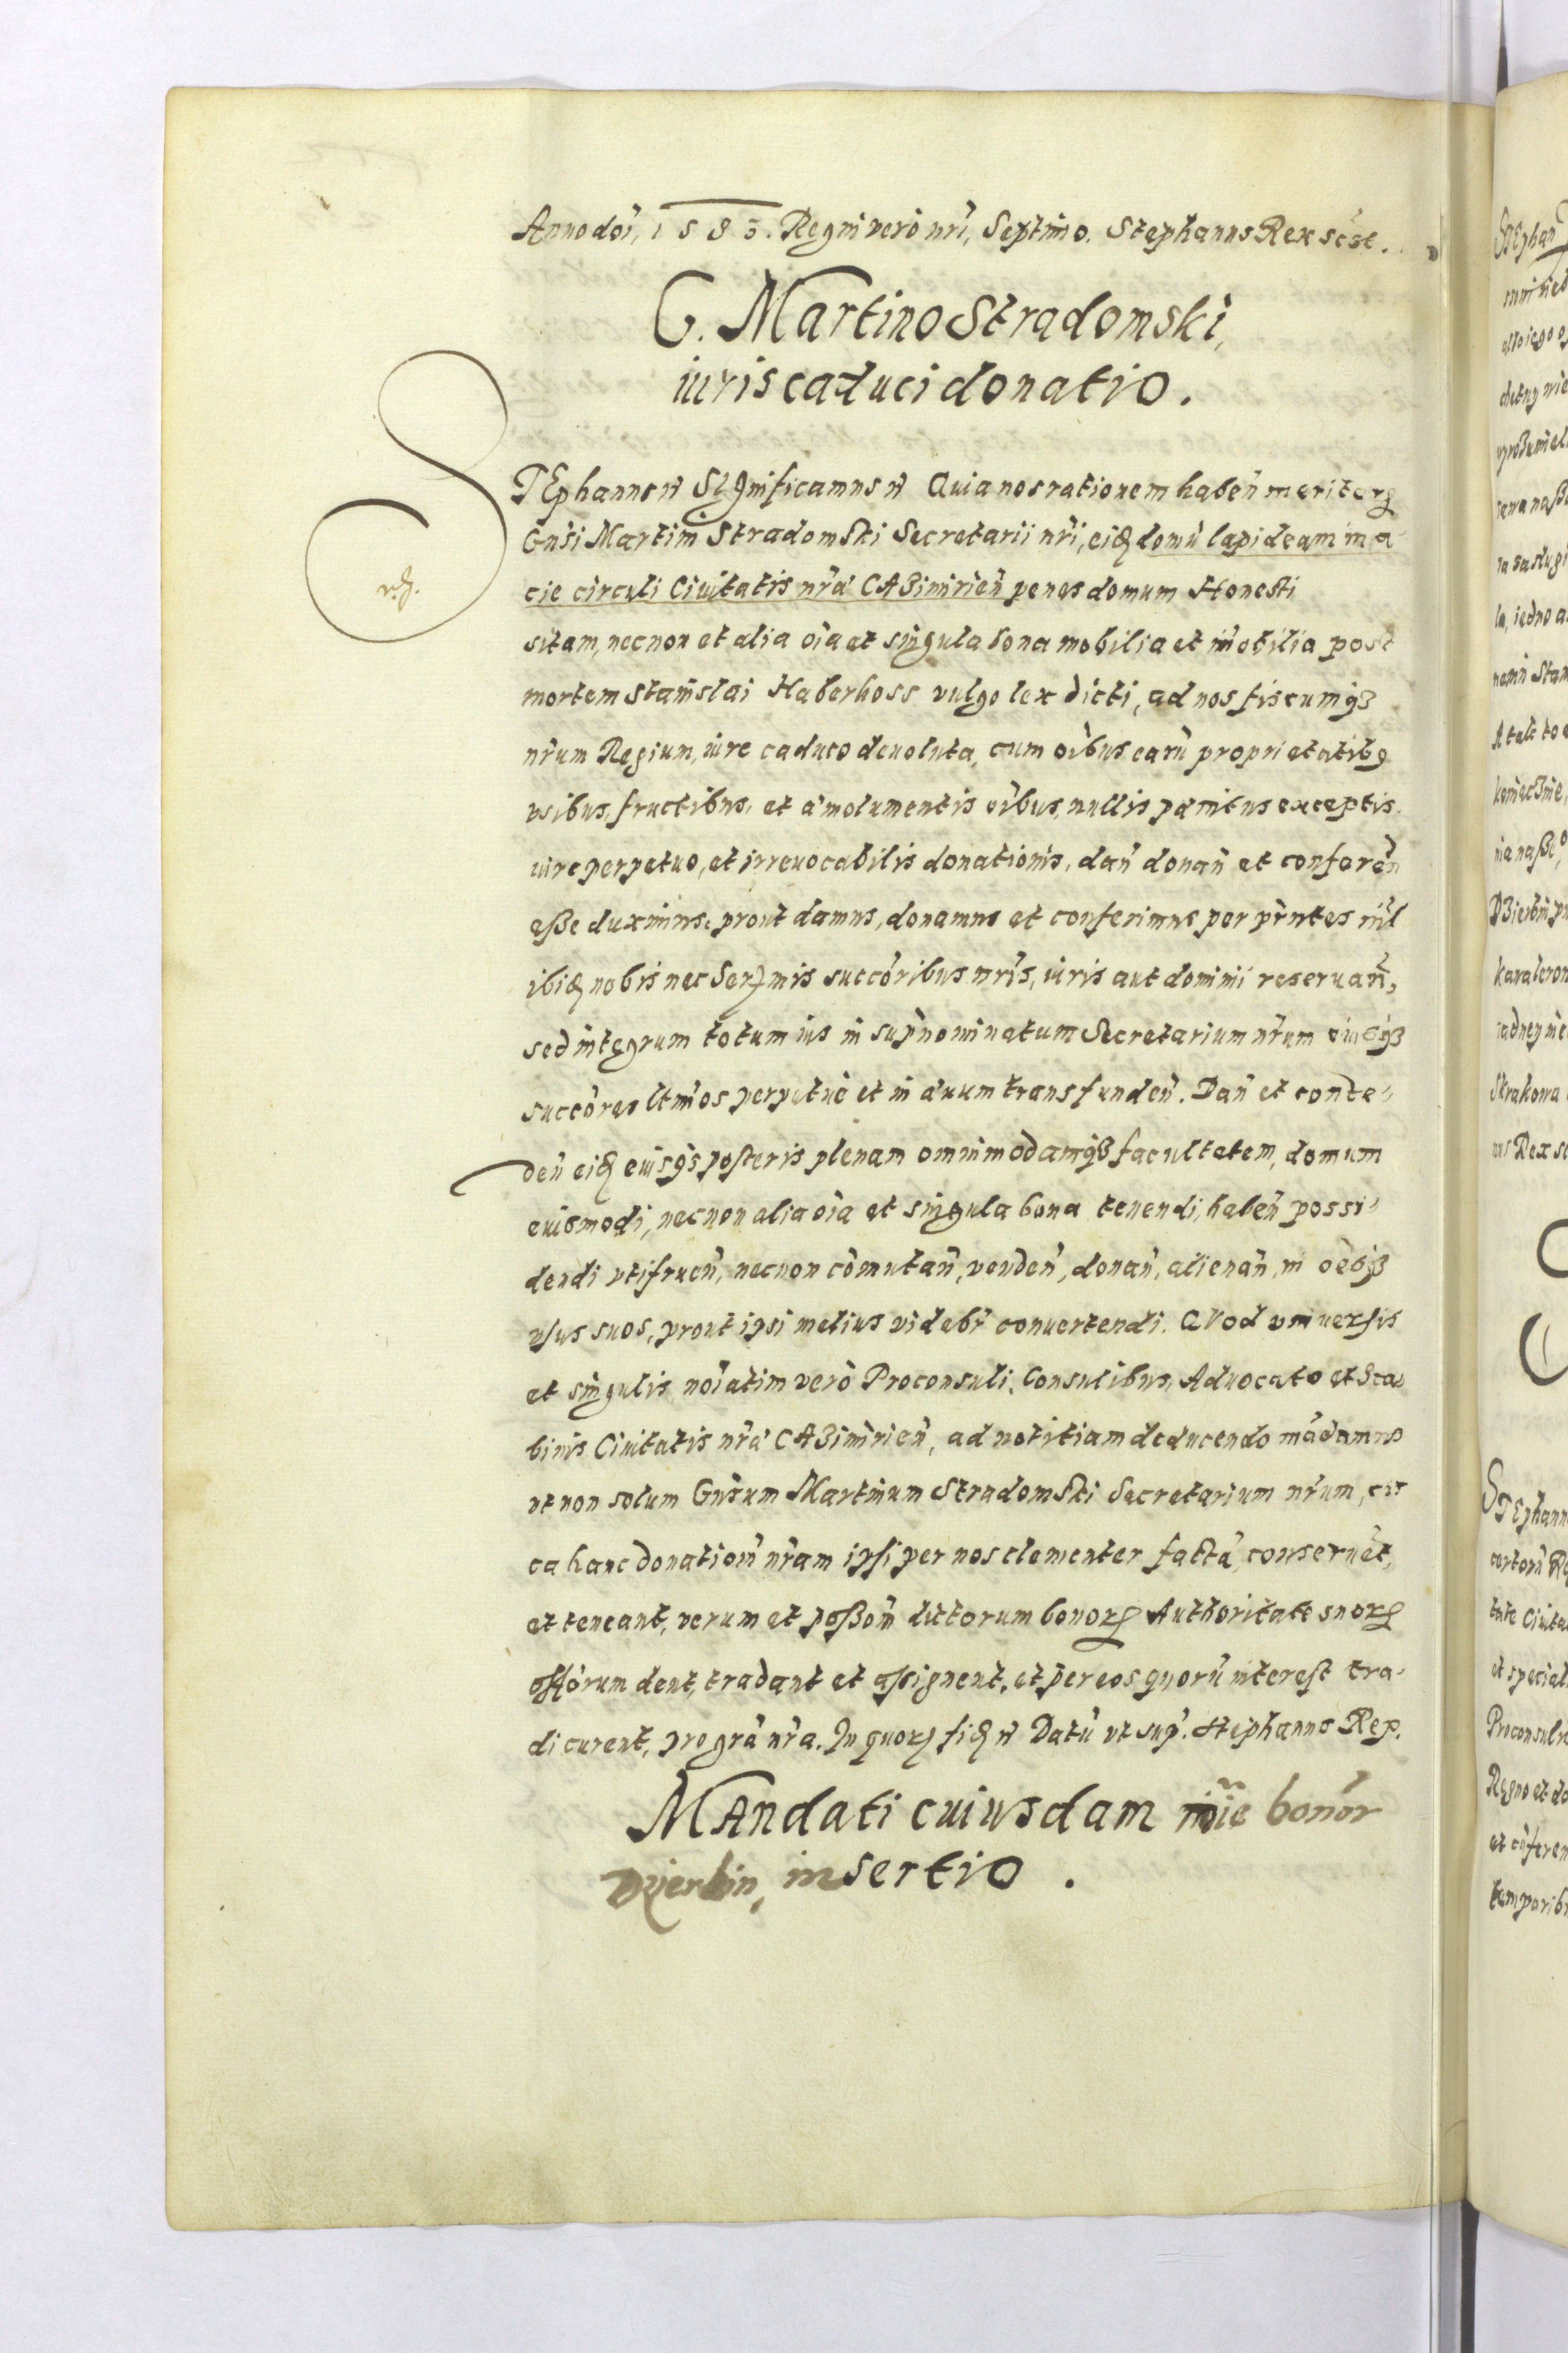 Anno doi, 1583. Regni vero nri, Septimo. Stephanus Rex scst.
G. Martino Stradomski,
iuris caduci donatio.
STEphanus Significamus Quia nos rationem haben meritorꝝ
Gnsi Martini Stradomski Secretarii nri, eiđ domũ lapideam in a-
cie circuli Ciuitatis nrã CAZimirien penes domum Honesti
sitam, necnon et alia oia et singula bona mobilia et imobilia post
mortem Stanislai Haberhoss vulgo lex dicti, ad nos fiscumqꝫ
nrum Regium, iure caduco deuoluta, cum oibus earũ proprietatibꝰ
vsibus, fructibus, et æmolumentis oibus, nullis pænitus exceptis.
iure perpetuo, et irreuocabilis donationis, dan donan et conferen
eße duximus, prout damus, donamus et conferimus per prntes nil
ibiđ nobis nec Serꝫmis succoribus nris, iuris aut dominii reseruan,
sed integrum totum ius in supnominatum Secretarium nrum eiusqꝫ
succores ltmos perpetue et in æuum transfunden. Dan et conce-
den eiđ eiusqs posteris plenam omnimodamqꝫ facultatem, domum
eiusmodi, necnon alia oia et singula bona tenendi, haben possi-
dendi vtifruen, necnon cõmutan, venden, donan, alienan, in oesqꝫ
vsus suos, prout ipsi melius videbr conuertendi. Quod vniuersis
et singulis, noiatim vero Proconsuli, Consulibus, Aduocato et Sca-
binis Ciuitatis nrã CAZimirien, ad notitiam deducendo mãdamus
vt non solum Gnsum Martinum Stradomski Secretarium nrum, cir
ca hanc donationẽ nram ipsi per nos clementer factã, conseruẽt,
et teneant, verum et poßõm dictorum bonorꝝ Authoritate suorꝝ
offõrum dent, tradant et aßignent, et per eos quorũ interest tra-
di curent, pro grã nra. In quorꝝ fiđ Datũ vt sup. Stephanus Rex.
MAndati cuiusdam nõie bonor
Dzierbin, insertio.